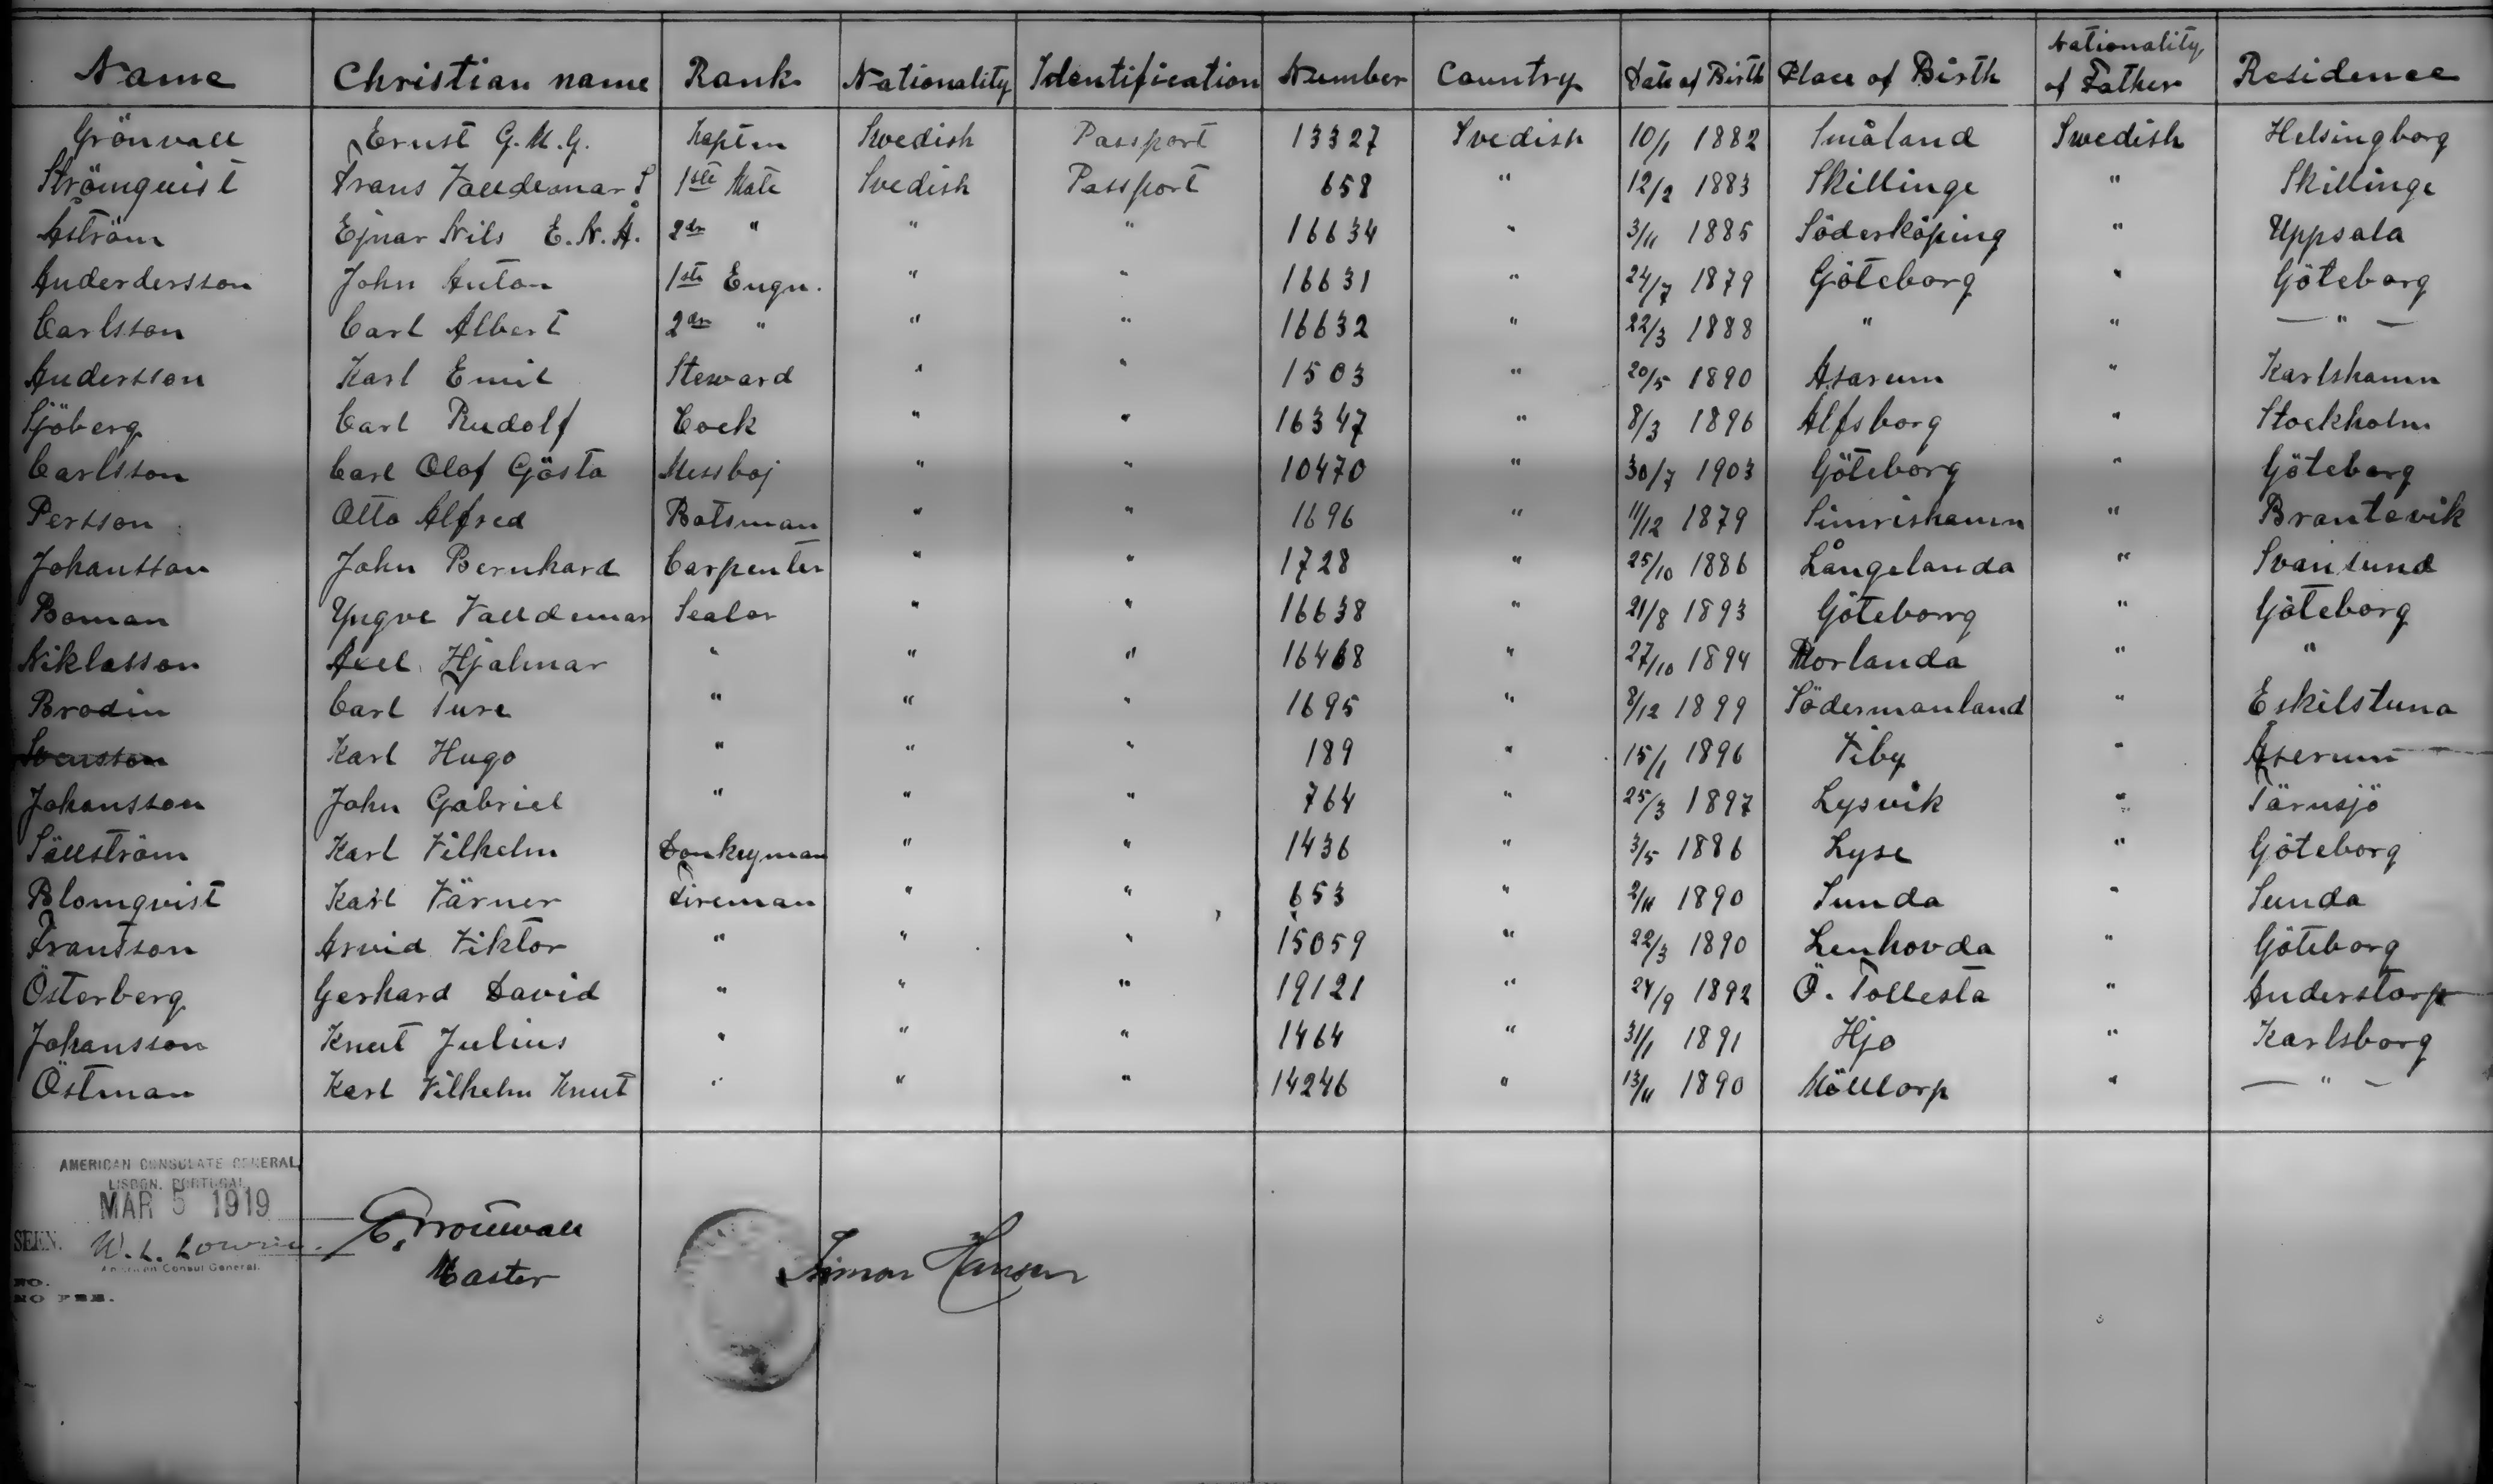 Name Christian name Rank Nationality Identification Number Country Date of Birth Place of Birth Nationality of Father Residence
Grönvall Ernst G.M.G. Kapten Swedish Passport 13327 Svedish 10/1 1882 Småland Swedish Helsingborg
Strömquist Frans Valldemar S 1ste Mate Svedish Passport 658 " 12/2 1883 Skillinge " Skillinge
Åström Ejnar Nils E.N.Å. 2dr " " " 16634 " 3/11 1885 Söderköping " Uppsala
Anderdersson John Anton 1ste Engn. " " 16631 " 24/7 1879 Göteborg " Göteborg
Carlsson Carl Albert 2dr " " " 16632 " 22/3 1888 " " — " —
Andersson Karl Emil Steward " " 1503 " 20/5 1890 Asarum " Karlshamn
Sjöberg Carl Rudolf Cock " " 16347 " 8/3 1896 Älfsborg " Stockholm
Carlsson Carl Olof Gösta Messboj " " 10470 " 30/7 1903 Göteborg " Göteborg
Persson Otto Alfred Botsman " " 1696 " 11/12 1879 Simrishamn " Brantevik
Johansson John Bernhard Carpenter " " 1728 " 25/10 1886 Långelanda " Svansund
Boman Yngve Valldemar Sealor " " 16638 " 21/8 1893 Göteborg " Göteborg
Niklasson Axel Hjalmar " " " 16468 " 27/10 1894 Morlanda " "
Brodin Carl Ture " " " 1695 " 8/12 1899 Södermanland " Eskilstuna
Svensson Karl Hugo " " " 189 " 15/1 1896 Viby " Åserum
Johansson John Gabriel " " " 764 " 25/3 1897 Lysvik " Tärnsjö
Sällström Karl Vilhelm Donkeyman " " 1436 " 3/5 1886 Lyse " Göteborg
Blomqvist Karl Värner Fireman " " 653 " 2/11 1890 Sunda " Sunda
Frantson Arvid Viktor " " " 15059 " 22/3 1890 Lenhovda " Göteborg
Österberg Gerhard David " " " 19121 " 24/9 1892 Ö. Tollesta " Anderstorp
Johansson Knut Julius " " " 1464 " 31/1 1891 Hjo " Karlsborg
Östman Karl Vilhelm Knut " " " 14246 " 13/11 1890 Mölltorp " — " —
AMERICAN CONSULATE GENERAL,
LISBON, PORTUGAL
MAR 5 1919
SEEN.
W. L. Lowrie.
American Consul General.
NO.
NO FEE.
E. Grönwall
Master
Simon Hansen